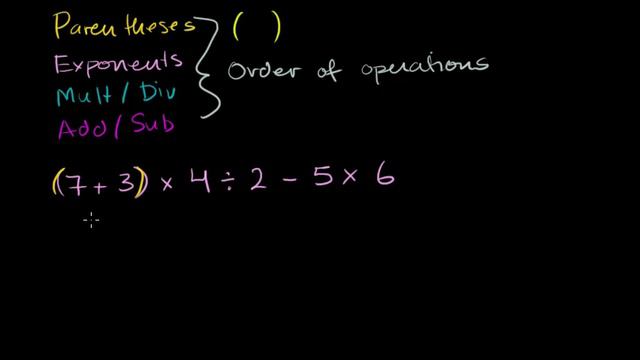 Parentheses ( )
Exponents
Order of operations
Mult/Div
Add/Sub
(7 + 3) × 4 ÷ 2 − 5 × 6